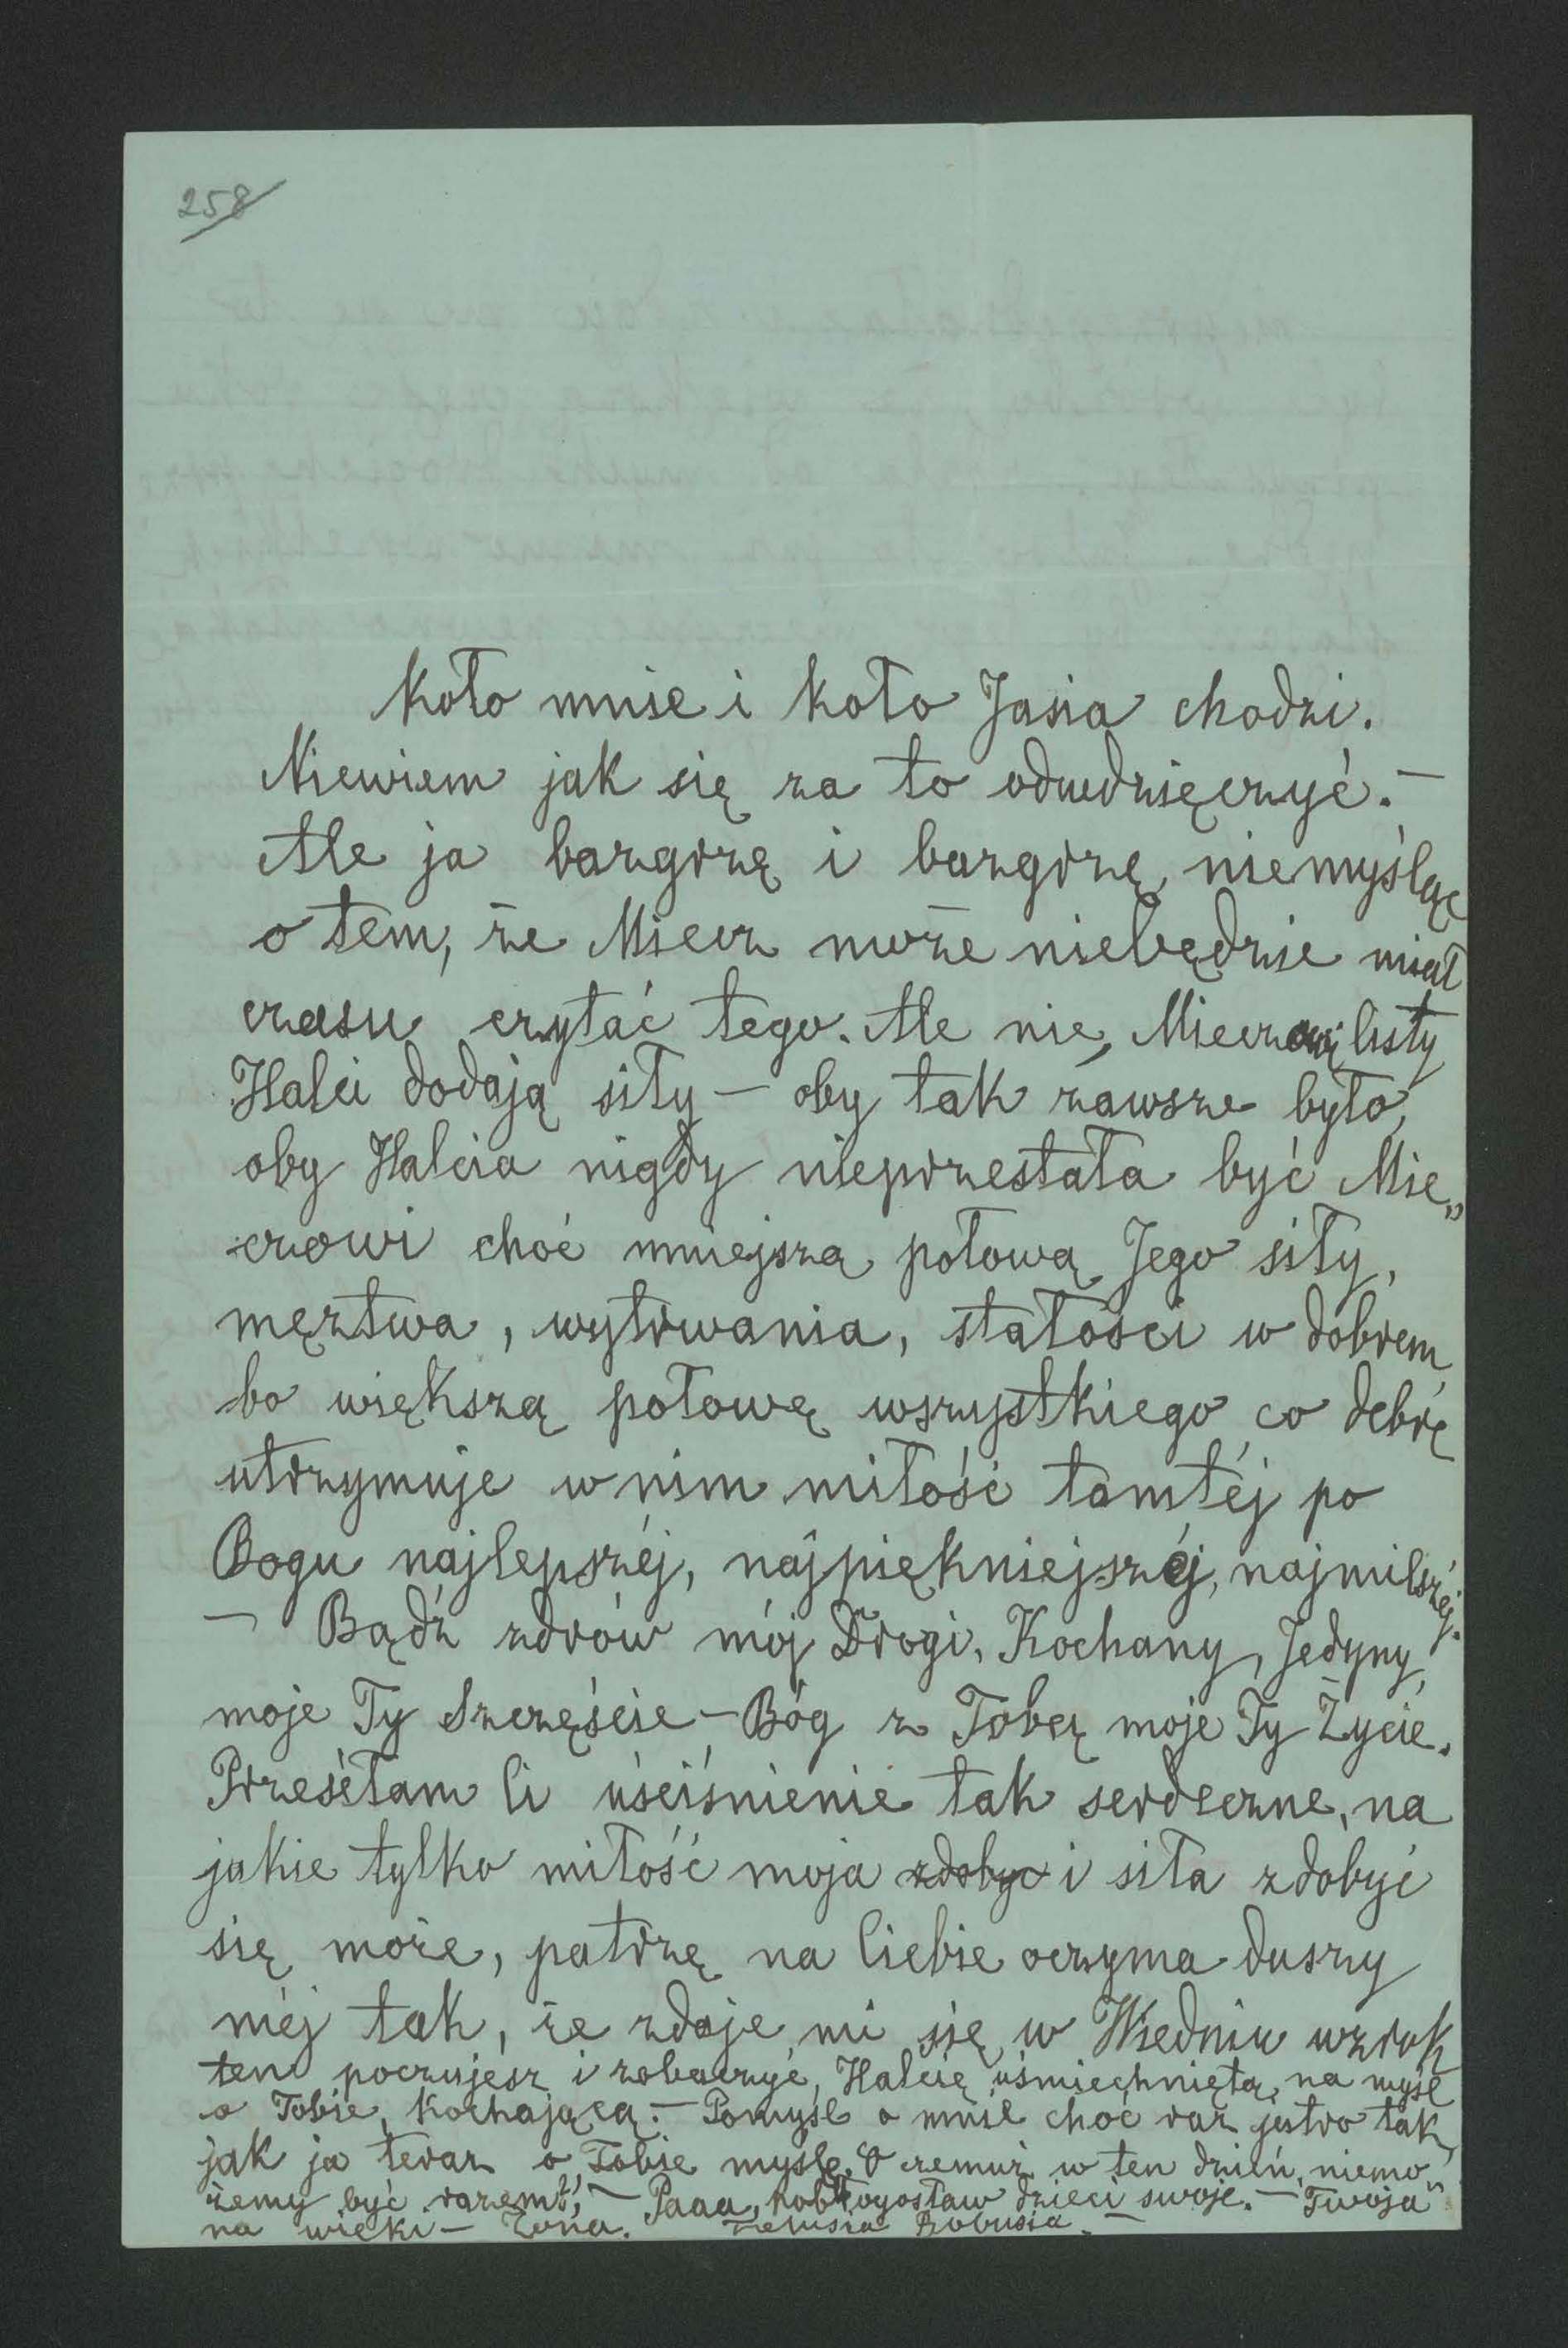 258
koło mnie i koło Jasia chodzi.
Niewiem jak się za to odwdzięczyć. —
Ale ja bazgrzę i bazgrzę, niemyśląc
o tem, że Miecz może niebędzie miał
czasu czytać tego. Ale nie, Mieczowi listy
Halci dodają siły — oby tak zawsze było,
oby Halcia nigdy nieprzestała być Mie„
czowi choć mniejszą połową Jego siły,
męztwa, wytrwania, stałości w dobrem,
bo większą połowę wszystkiego co dobrę
utrzymuje w nim miłość tamtéj po
Bogu najlepszéj, najpiękniejszéj, najmilszéj.
— Bądź zdrów mój Drogi, Kochany, Jedyny,
moje Ty Szczęście — Bóg z Tobą moje Ty Życie.
Przesétam Ci uściśnienie tak serdeczne, na
jakie tylko miłość moja zdobyc i siła zdobyć
się może, patrzę na Ciebie oczyma duszy
méj tak, że zdaje mi się w Wiedniu wzrok
ten poczujesz i zobaczyć, Halcię uśmiechniętą, na myśl
o Tobie, kochającą. — Pomyśl o mnie choć raz jutro tak,
jak ja teraz o Tobie myślę. O czemuż w ten dzień, niemo„
żemy być razem?, — Paaa, pobłogosław dzieci swoje. — Twoja
na wieki — Żona. Bobusia. —